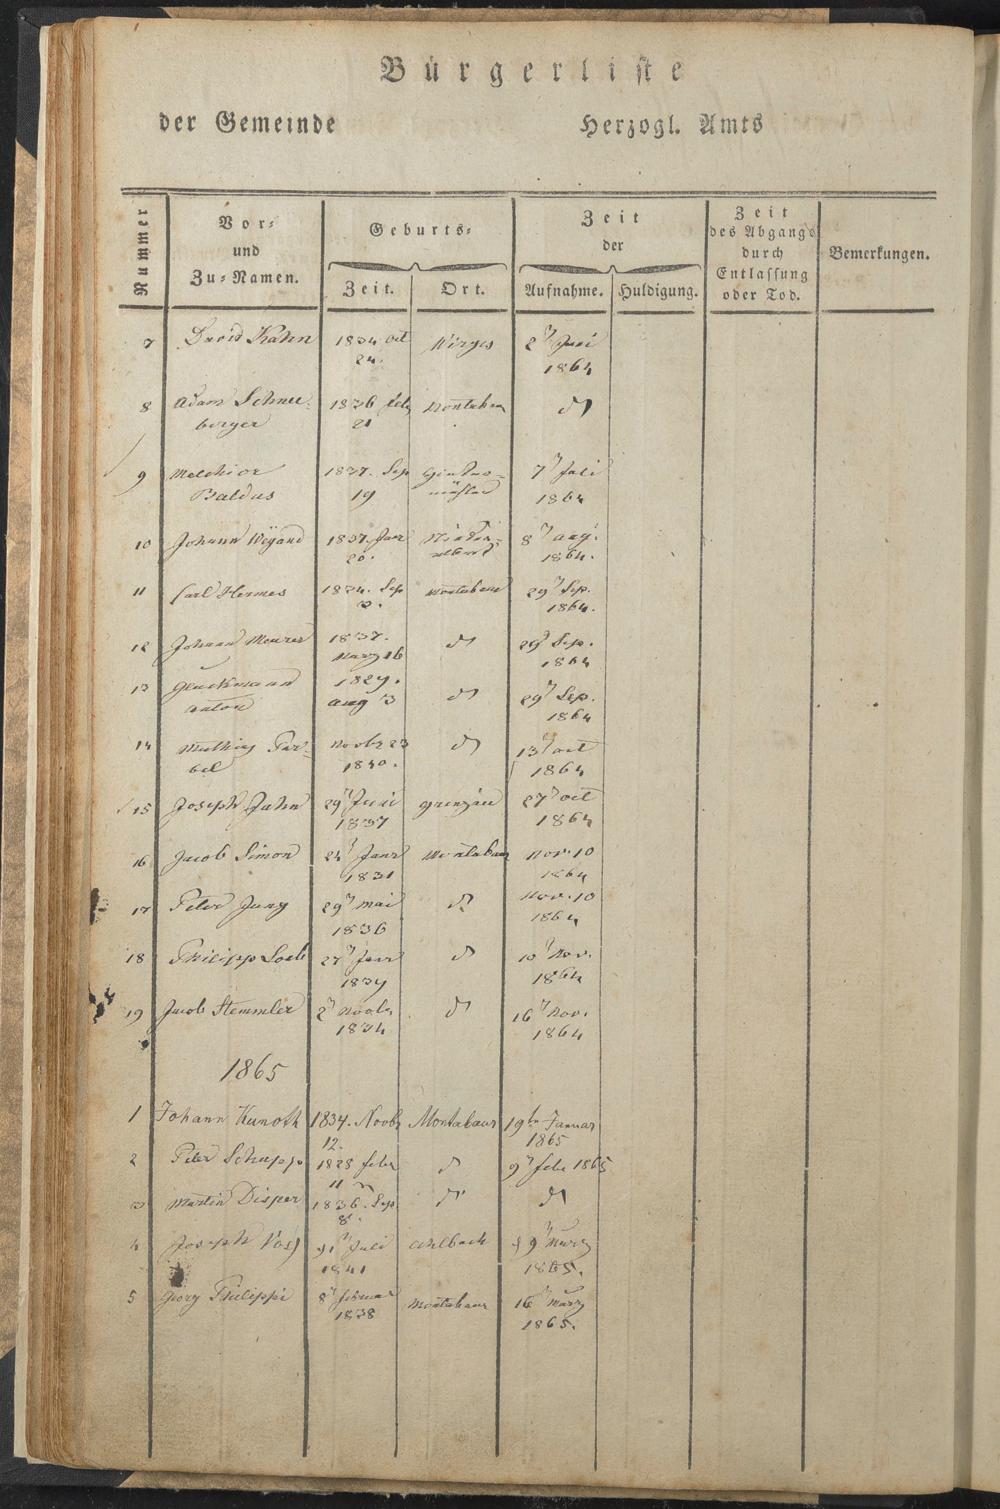 Bürgerliste
der Gemeinde Herzogl. Amts
Nummer
Vor-
und
Zu-Namen.
Geburts-
Zeit. Ort.
Zeit
der
Aufnahme. Huldigung.
Zeit
des Abgangs
durch
Entlassung
oder Tod.
Bemerkungen.
7 David Kahn 1834 Oct Wirges 2t Juni
24. 1864
8 Adam Schnee- 1836 febr Montabaur do
berger 21
9 Melchior 1837. Sep 7t Juli
Baldus 19 1864
10 Johann Wigand 1837. Jan 8t aug.
20. 1864.
11 Carl Hermes 1834. Sep Montabaur 29t Sep.
3. 1864.
12 Johann Meurer 1837. do 29t Sep.
März 16 1864
13 Glückmann 1829. do 29t Sep.
Anton aug 3 1864
14 Mathias Novbr 23 do 13t oct
1840. 1864
15 Joseph Jahn 29t Juni Grenzau 27t oct
1837 1864
16 Jacob Simon 24t Janr Montabaur Nov. 10
1831 1864
17 Peter Jung 29t Mai do Nov. 10
1836 1864
18 Philipp Loeb 27t Janr do 10t Nov.
1839 1864
19 Jacob Stemmler 2t Novbr do 16t Nov.
1834 1864
1865
1 Johann Kunoth 1834. Novbr Montabaur 19ten Januar
12. 1865
2 Peter Schupp 1828 febr do 9t febr 1865
11
3 Martin Disper 1836. Sep do do
8.
4 Joseph 31t Juli Ahlbach 9t März
1841 1865.
5 Georg Philippi 8t februar Montabaur 16t März
1838 1865.